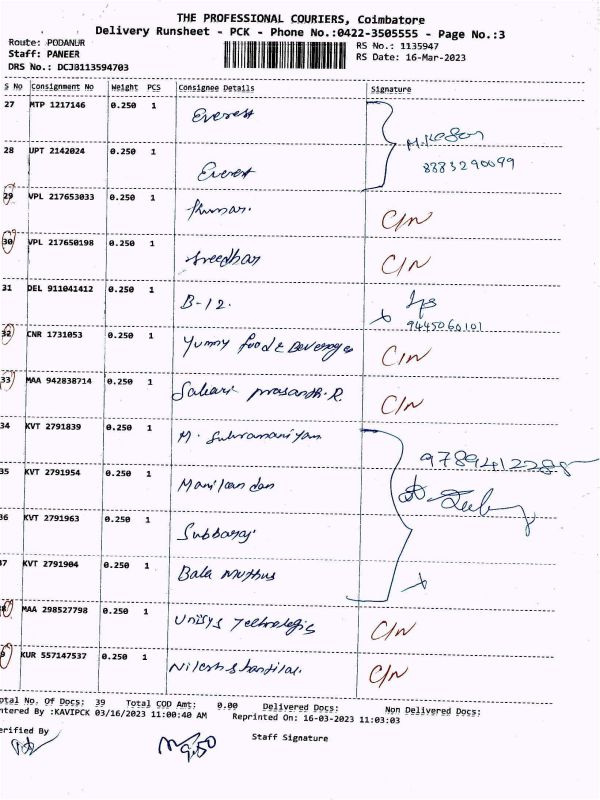 THE PROFESSIONAL COURIERS, Coimbatore
Delivery Runsheet - PCK - Phone No.:0422-3505555 - Page No.:3
Route: PODANUR RS No.: 1135947
Staff: PANEER RS Date: 16-Mar-2023
DRS No.: DCJ0113594703
S No Consignment No Weight PCS Consignee Details Signature
27 MTP 1217146 0.250 1 Everest
M.Kesan
28 UPT 2142024 0.250 1 Everest 8883290099
29 VPL 217653033 0.250 1 Kumar. C/N
30 VPL 217650198 0.250 1 Sreedhar C/N
31 DEL 911041412 0.250 1 B-12.
9445060101
32 CNR 1731053 0.250 1 Yummy food & Beverages C/N
33 MAA 942838714 0.250 1 Prasanth.R. C/N
34 KVT 2791839 0.250 1 M. Subramaniyam
9789412288
35 KVT 2791954 0.250 1 Manikandan
36 KVT 2791963 0.250 1 Subbaraj
37 KVT 2791904 0.250 1 Bala Muthus
38 MAA 298527798 0.250 1 Unisys Technologis C/N
39 KUR 557147537 0.250 1 Nilesh shantilal. C/N
otal No. Of Docs: 39 Total COD Amt: 0.00 Delivered Docs: Non Delivered Docs:
ntered By :KAVIPCK 03/16/2023 11:00:40 AM Reprinted On: 16-03-2023 11:03:03
erified By Staff Signature
9.50